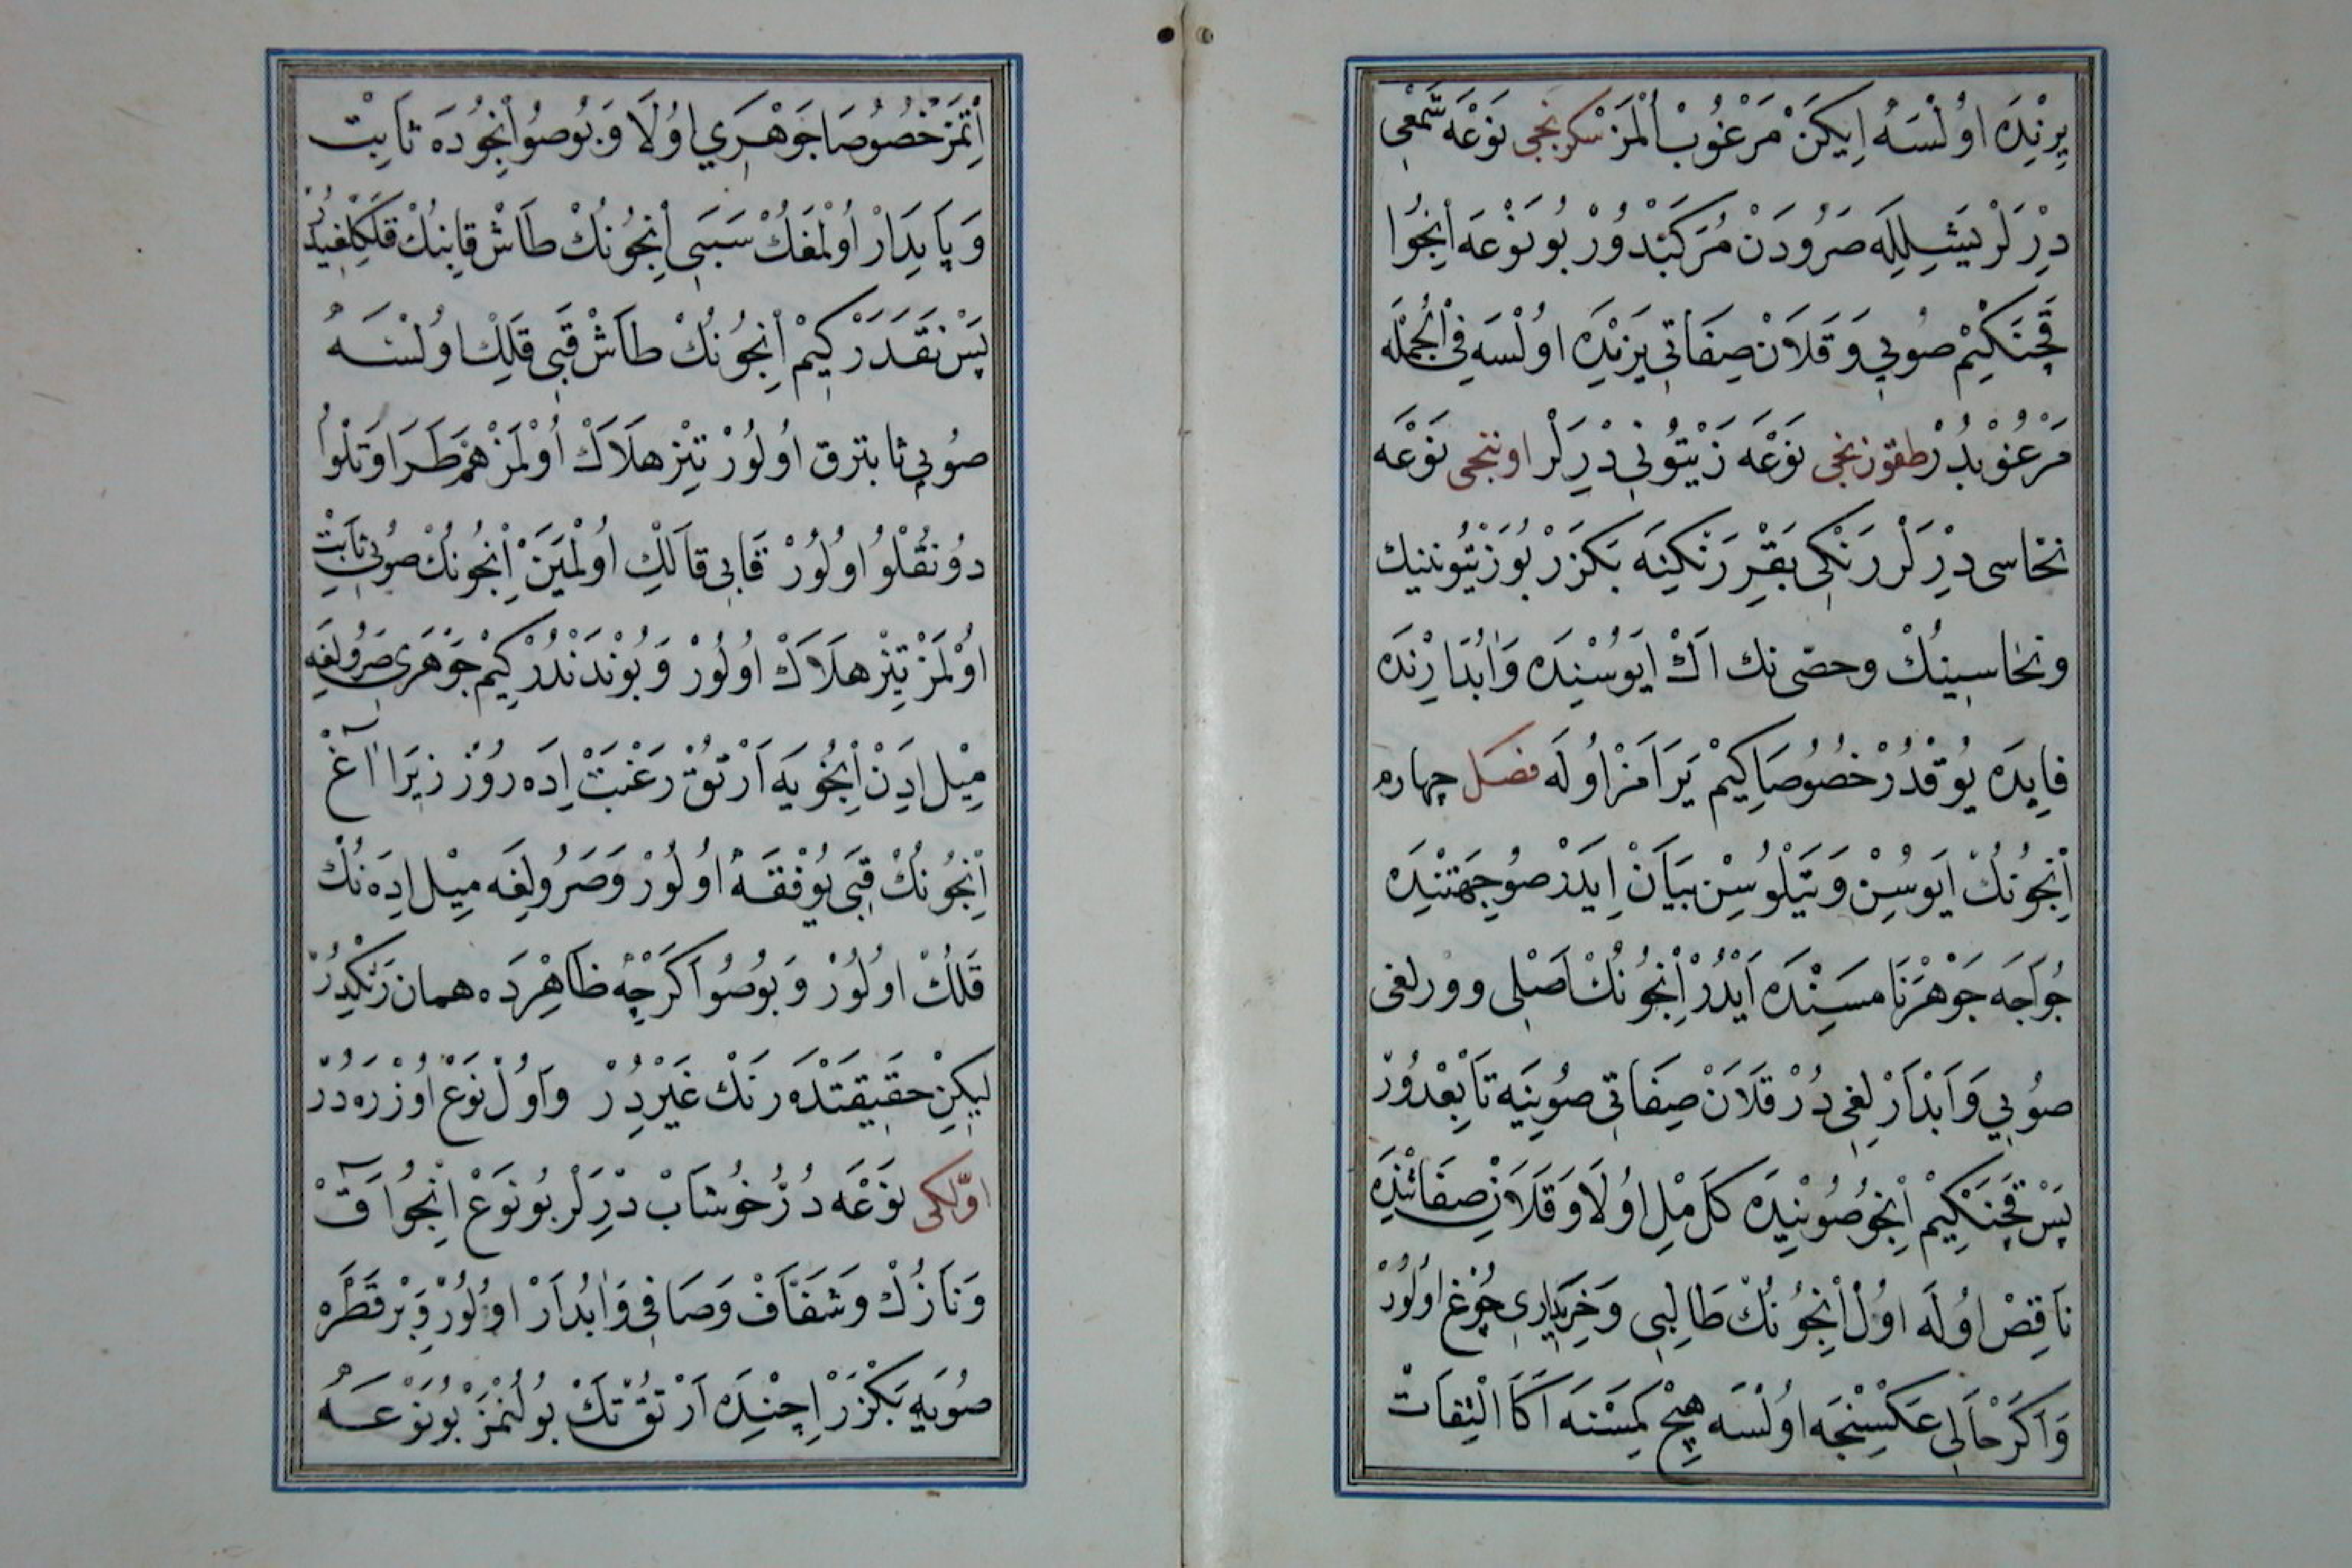 يِرِنْدَه اوُلْسَه اِيكَنْ مَرْغُوبْ اُلْمَزْ سكزنجى نَوْعَه شَمْعِى
دِرْلَرْ يَشِلِلَه صَرُودَنْ مُرَكَّبْدُورْ بُو نَوْعَه اِنْجُوا
قَچَنَكِيمْ صُويِى وَ قَلَانْ صِفَاتِى يَرِنْدَه اوُلْسَه فِى الْجُمْلَه
مَرْغُوبْدُرْ طقوزنجى نَوْعَه زَيْتُونِى دِرْلَرْ اوننجى نَوْعَه
نحاسى دِرْلَرْ رَنْكِى بَقِرْ رَنْكِنَه بَكْزَرْ بُو زَيْتُونينك
ونحاسينُكْ وحصّى نك اَكْ اَيُوسْنِدَه وَابُدَارِنْدَه
فايِدَه يُوقْدُرْ خُصُوصَا كِيمْ يَرَامَزْ اوُلَه فصل چهارم
اِنْجُونُكْ اَيُوسُنْ وَ يَتْلُوسُنْ بَيَانْ اِيدَرْ صُو جِهَتِنْدَه
خُوَاجَه جَوْهَرْنَامَسِنْدَه اَيْدُرْ اِنْجُونُكْ اَصْلِى وورلغى
صُويِى وَ اَبْدَارْلِغِى دُرْ قَلَانْ صِفَاتِى صُويِنَه تَابِعْدُورْ
پَسْ قَچَنَكِيمْ اِنْجُو صُويِنْدَه كَامِلْ اوُلَا وَ قَلَانْ صِفَاتِنْدَه
نَاقِصْ اوُلَه اوُلْ اِنْجُونُكْ طَالِبِى وَ خَرِيدَارِى چُوغْ اوُلُورْ
وَاكَرْ حَالِى عَكْسِنْجَه اوُلْسَه هِيچْ كِمَسْنَه اَكَا الْتِفَاتْ
اِتْمَزْ خُصُوصَا جَوْهَرِي اوُلَا وَ بُو صُو اِنْجُودَه ثَابِتْ
وَ پَايِدَارْ اوُلْمَغُكْ سَبَبِى اِنْجُونُكْ طَاشْ قاپِنُكْ قَلِكْلِغِيدُرْ
پَسْ نَقَدَرْ كِيمْ اِنْجُونُكْ طَاشْ قَپِى قَلِكْ اوُلْسَه
صُويِى ثابترق اوُلُورْ تِيزْ هلَاكْ اوُلْمَزْ هَمْ طَرَاوَتْلُو
دُونُقْلُو اوُلُورْ قَابِى قاَلِكْ اوُلْمَيَنْ اِنْجُونُكْ صُويِى ثَابِتْ
اوُلْمَزْ تِيزْ هلَاكْ اوُلُورْ وَ بُونْدَنْدُرْ كِيمْ جَوْهَرِى صَرُولِغَه
مِيْل اِدَنْ اِنْجُويَه اَرْتُقْ رَغْبَتْ اِدَه رُوْرْ زيَرَا آغ
اِنْجُونُكْ قَپِى يُوفْقَه اوُلُورْ وَ صَرُولِغَه مِيْل اِدَه نُكْ
قَلِكْ اوُلُورْ وَ بُو صُو اَكَرْچِه ظَاهِرْدَه همان رَنْكِدُرْ
لِيكِنْ حَقِيقَتْدَه رَنْك غَيْرِدُرْ وَاوُلْ نَوْعْ اوُزْرَه دُرْ
اوّلكى نَوْعَه دُرّ خُوشَابْ دِرْلَرْ بُو نَوْعْ اِنْجُو آقْ
وَ نَازُكْ وَ شَفَّافْ وَ صَافِى وَابُدَارْ اوُلُورْ وَ بِرْ قَطْرَه
صُويَه بَكْزَرْ اِچِنْدَه اَرْتُقْ تَكْ بُولُنْمَزْ بُو نَوْعَه